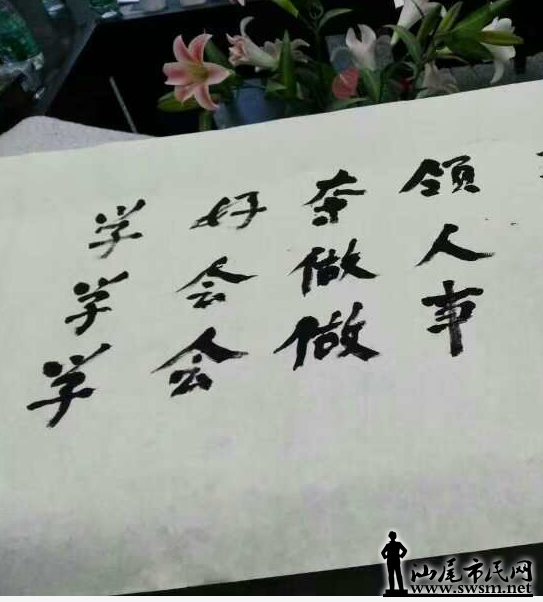 学好本领
学会做人
学会做事
汕尾市民网
www.swsm.net